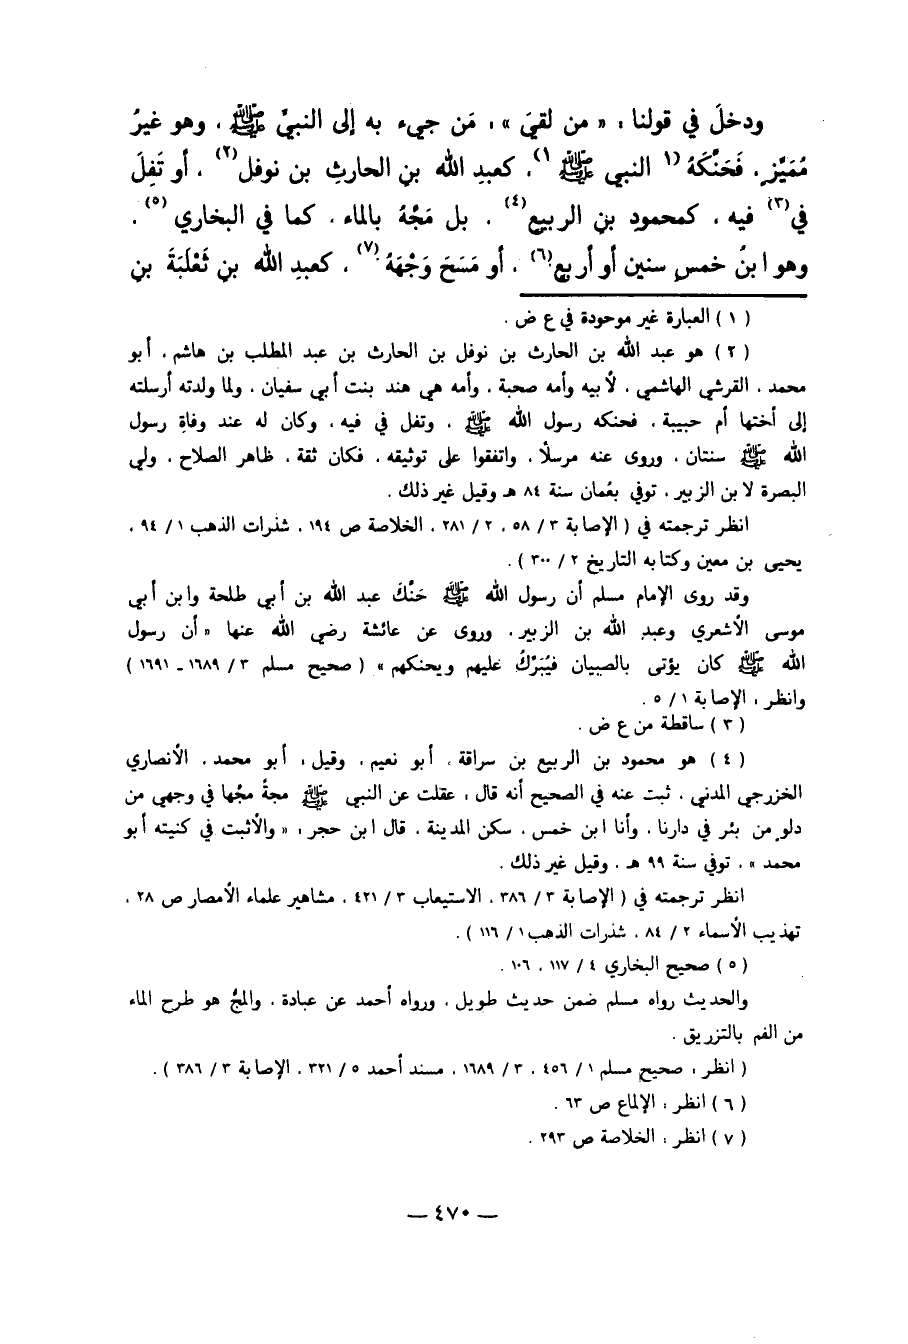 ودخلَ في قولنا : « من لقيَ » : مَن جيء به إلى النبيِّ ﷺ ، وهو غيرُ
مُمَيَّزٍ ، فَحَنَّكَهُ (١ النبي ﷺ ١) ، كعبدِ الله بنِ الحارثِ بن نوفل(٢) ، أو تَفِلَ
في(٣) فيه ، كمحمودِ بنِ الربيع(٤) ، بل مَجَّهُ بالماء ، كما في البخاري(٥) ،
وهو ابنُ خمسِ سنين أو أربع(٦) ، أو مَسَحَ وَجْهَهُ(٧) ، كعبدِ الله بنِ ثَعْلَبَةَ بنِ
( ١ ) العبارة غير موجودة في ع ض .
( ٢ ) هو عبد الله بن الحارث بن نوفل بن الحارث بن عبد المطلب بن هاشم ، أبو
محمد ، القرشي الهاشمي ، لأبيه وأمه صحبة ، وأمه هي هند بنت أبي سفيان ، ولما ولدته أرسلته
إلى أختها أم حبيبة ، فحنكه رسول الله ﷺ ، وتفل في فيه ، وكان له عند وفاة رسول
الله ﷺ سنتان ، وروى عنه مرسلاً ، واتفقوا على توثيقه ، فكان ثقة ، ظاهر الصلاح ، ولي
البصرة لابن الزبير ، توفي بعُمان سنة ٨٤ هـ وقيل غير ذلك .
انظر ترجمته في ( الإصابة ٣ / ٥٨ ، ٢ / ٢٨١ ، الخلاصة ص ١٩٤ ، شذرات الذهب ١ / ٩٤ ،
يحيى بن معين وكتابه التاريخ ٢ / ٣٠٠ ) .
وقد روى الإمام مسلم أن رسول الله ﷺ حَنَّكَ عبد الله بن أبي طلحة وابن أبي
موسى الأشعري وعبد الله بن الزبير ، وروى عن عائشة رضي الله عنها « أن رسول
الله ﷺ كان يؤتى بالصبيان فيُبَرِّكُ عليهم ويحنكهم » ( صحيح مسلم ٣ / ١٦٨٩ ـ ١٦٩١ )
وانظر : الإصابة ١ / ٥ .
( ٣ ) ساقطة من ع ض .
( ٤ ) هو محمود بن الربيع بن سراقة ، أبو نعيم ، وقيل : أبو محمد ، الأنصاري
الخزرجي المدني ، ثبت عنه في الصحيح أنه قال : عقلت عن النبي ﷺ مجةً مجّها في وجهي من
دلوٍ من بئر في دارنا ، وأنا ابن خمس ، سكن المدينة ، قال ابن حجر : « والأثبت في كنيته أبو
محمد » ، توفي سنة ٩٩ هـ ، وقيل غير ذلك .
انظر ترجمته في ( الإصابة ٣ / ٣٨٦ ، الاستيعاب ٣ / ٤٢١ ، مشاهير علماء الأمصار ص ٢٨ ،
تهذيب الأسماء ٢ / ٨٤ ، شذرات الذهب ١ / ١١٦ ) .
( ٥ ) صحيح البخاري ٤ / ١١٧ ، ١٠٦ .
والحديث رواه مسلم ضمن حديث طويل ، ورواه أحمد عن عبادة ، والمجُّ هو طرح الماء
من الفم بالتزريق .
( انظر : صحيح مسلم ١ / ٤٥٦ ، ٣ / ١٦٨٩ ، مسند أحمد ٥ / ٣٢١ ، الإصابة ٣ / ٣٨٦ ) .
( ٦ ) انظر : الإلماع ص ٦٣ .
( ٧ ) انظر : الخلاصة ص ٢٩٣ .
— ٤٧٠ —